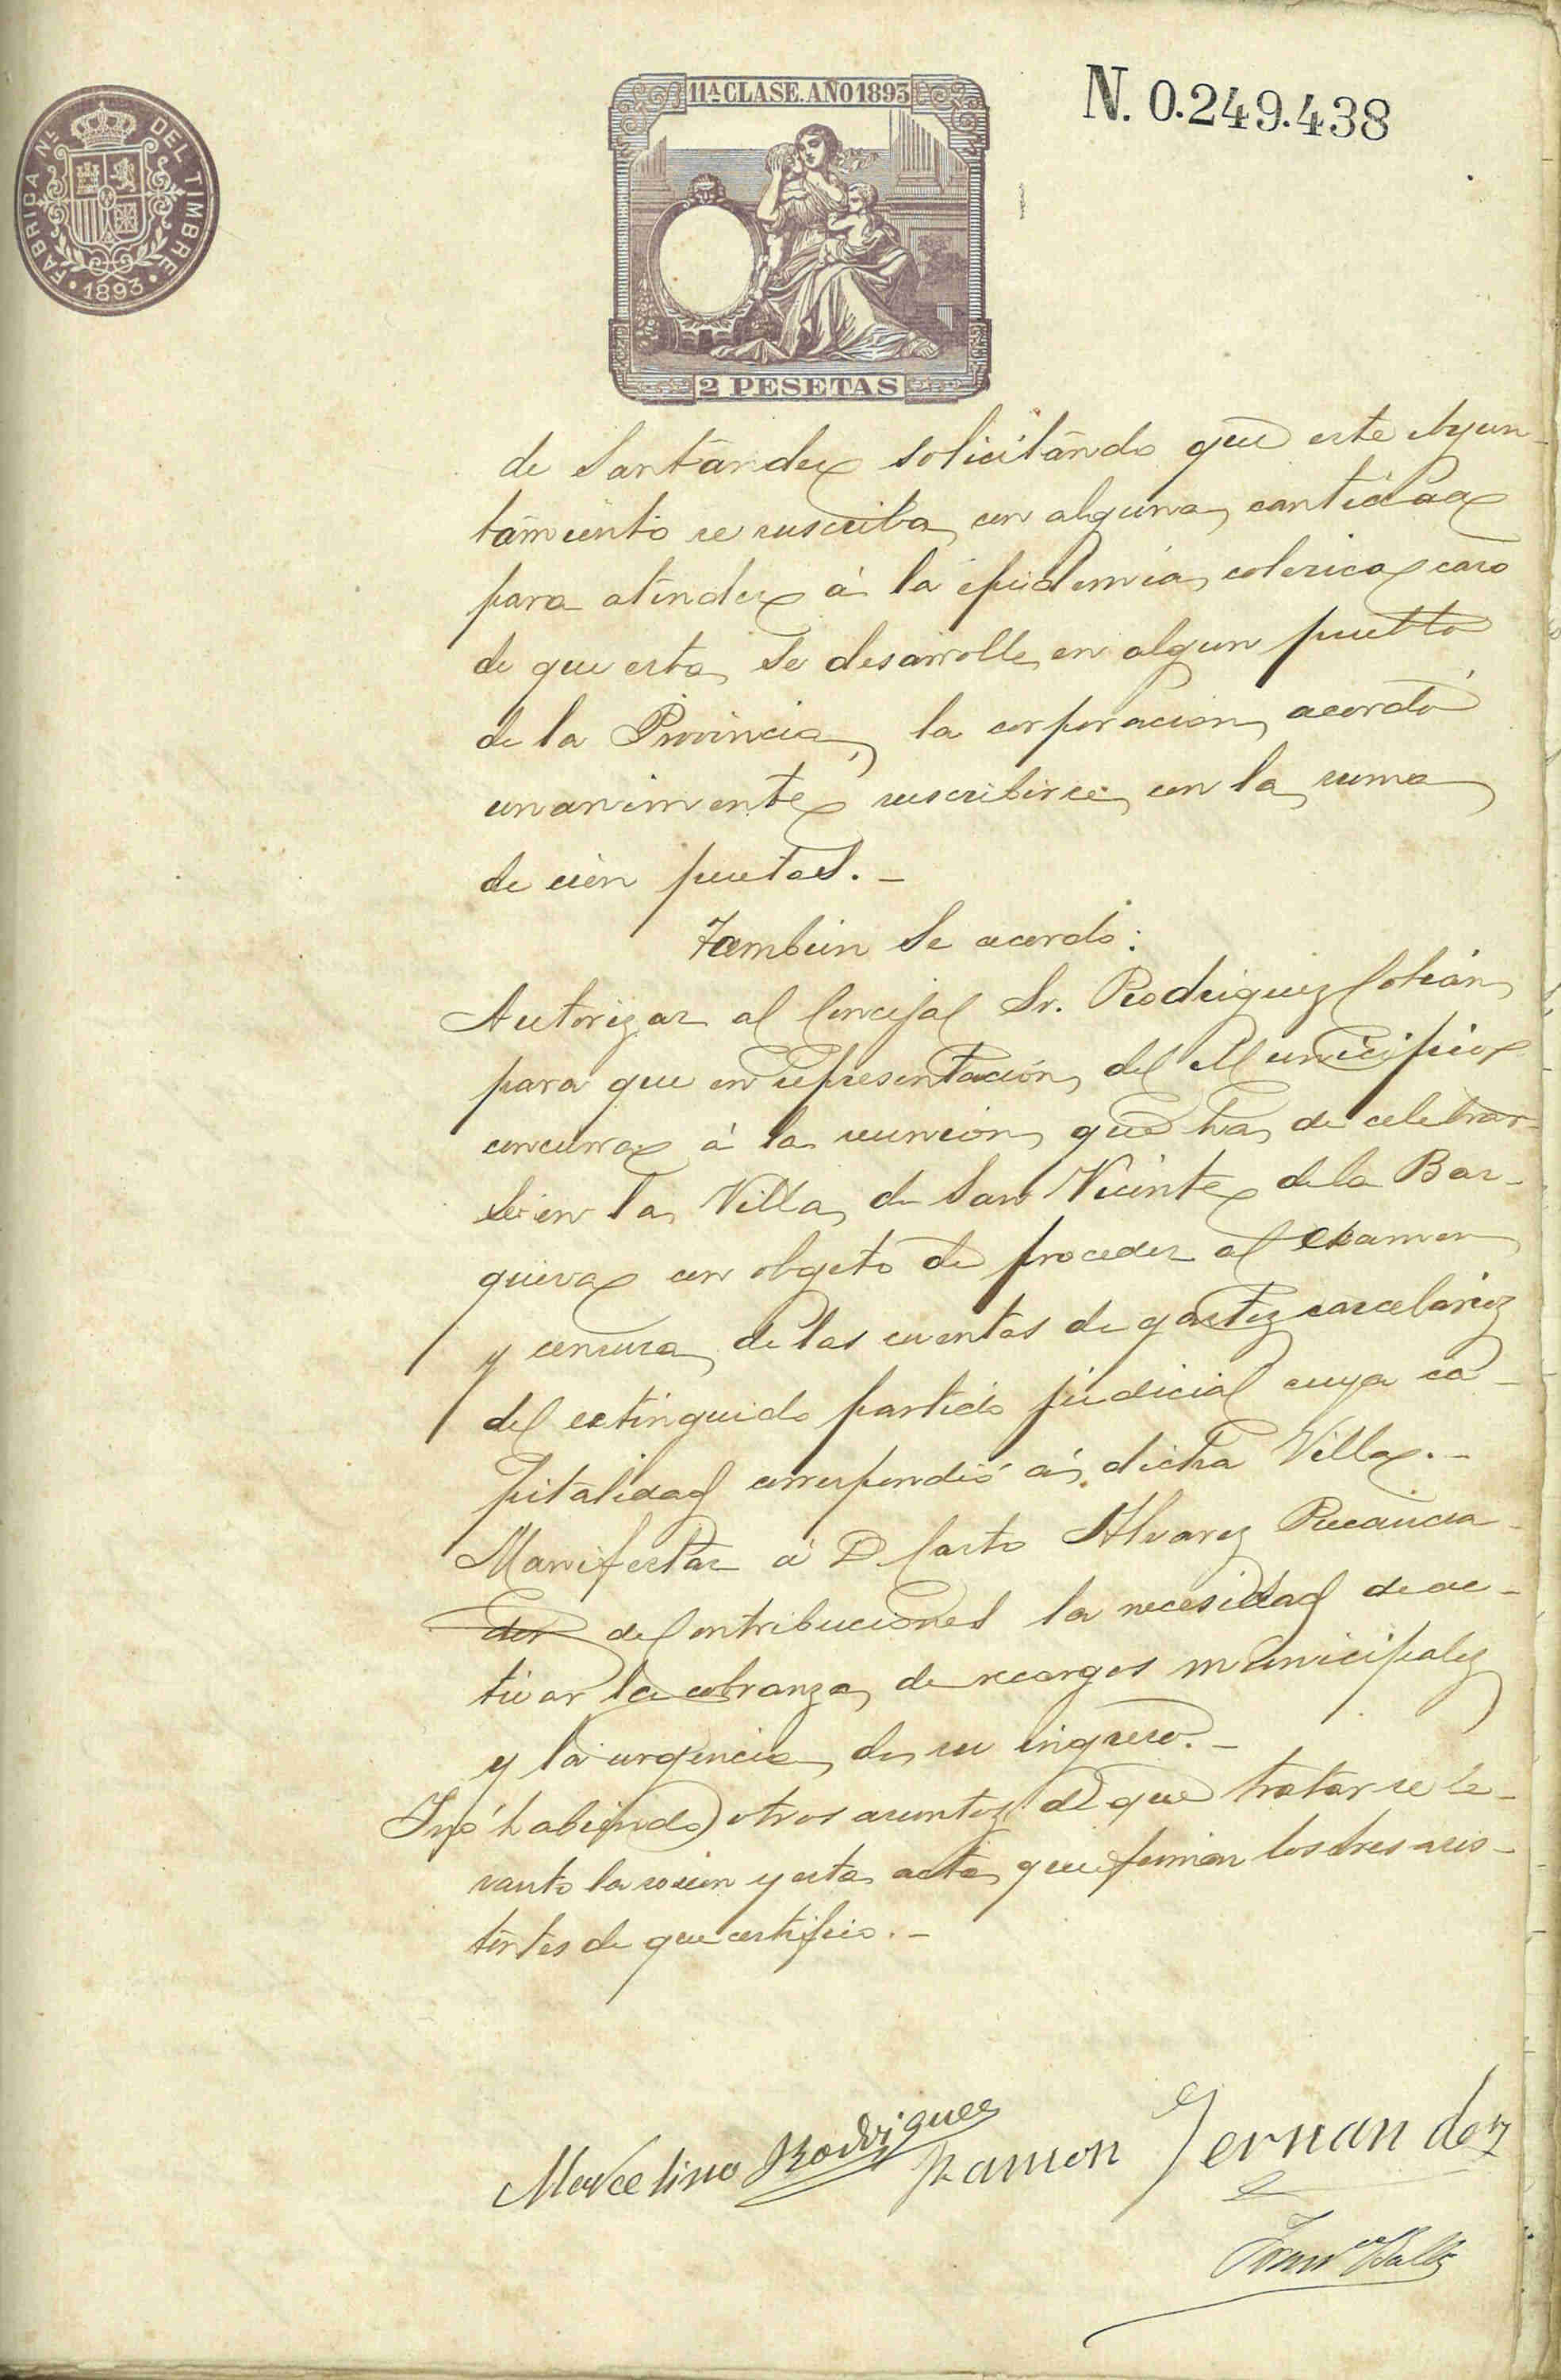 FABRICA NL. DEL TIMBRE
1893
11ª CLASE. AÑO 1893
2 PESETAS
N. 0.249.438
de Santander solicitando que este Ayun-
tamiento se suscriba con alguna cantidad
para atender á la epidemia colerica caso
de que esta se desarrolle en algun pueblo
de la Provincia, la corporacion acordó
unanimente suscribirse con la suma
de cien pesetas.-
Tambien se acordo:
Autorizar al Concejal Sr. Rodriguez Cotián
para que en representación del Municipio
concurra á la reunion que ha de celebrar-
se en la Villa de San Vicente de la Bar-
quera con objeto de proceder al examen
y censura de las cuentas de gastos carcelarios
del extinguido partido judicial cuya ca-
pitalidad correspondió á dicha Villa.-
Manifestar á D Casto Alvarez Recauda-
dor de Contribuciones la necesidad de ac-
tivar la cobranza de recargos municipales
y la urgencia de su ingreso.-
Y no habiendo otros asuntos de que tratar se le-
vanto la sesion y esta acta que firman los tres asis-
tentes de que certifico.-
Marcelino Rodriguez
Ramon Fernandez